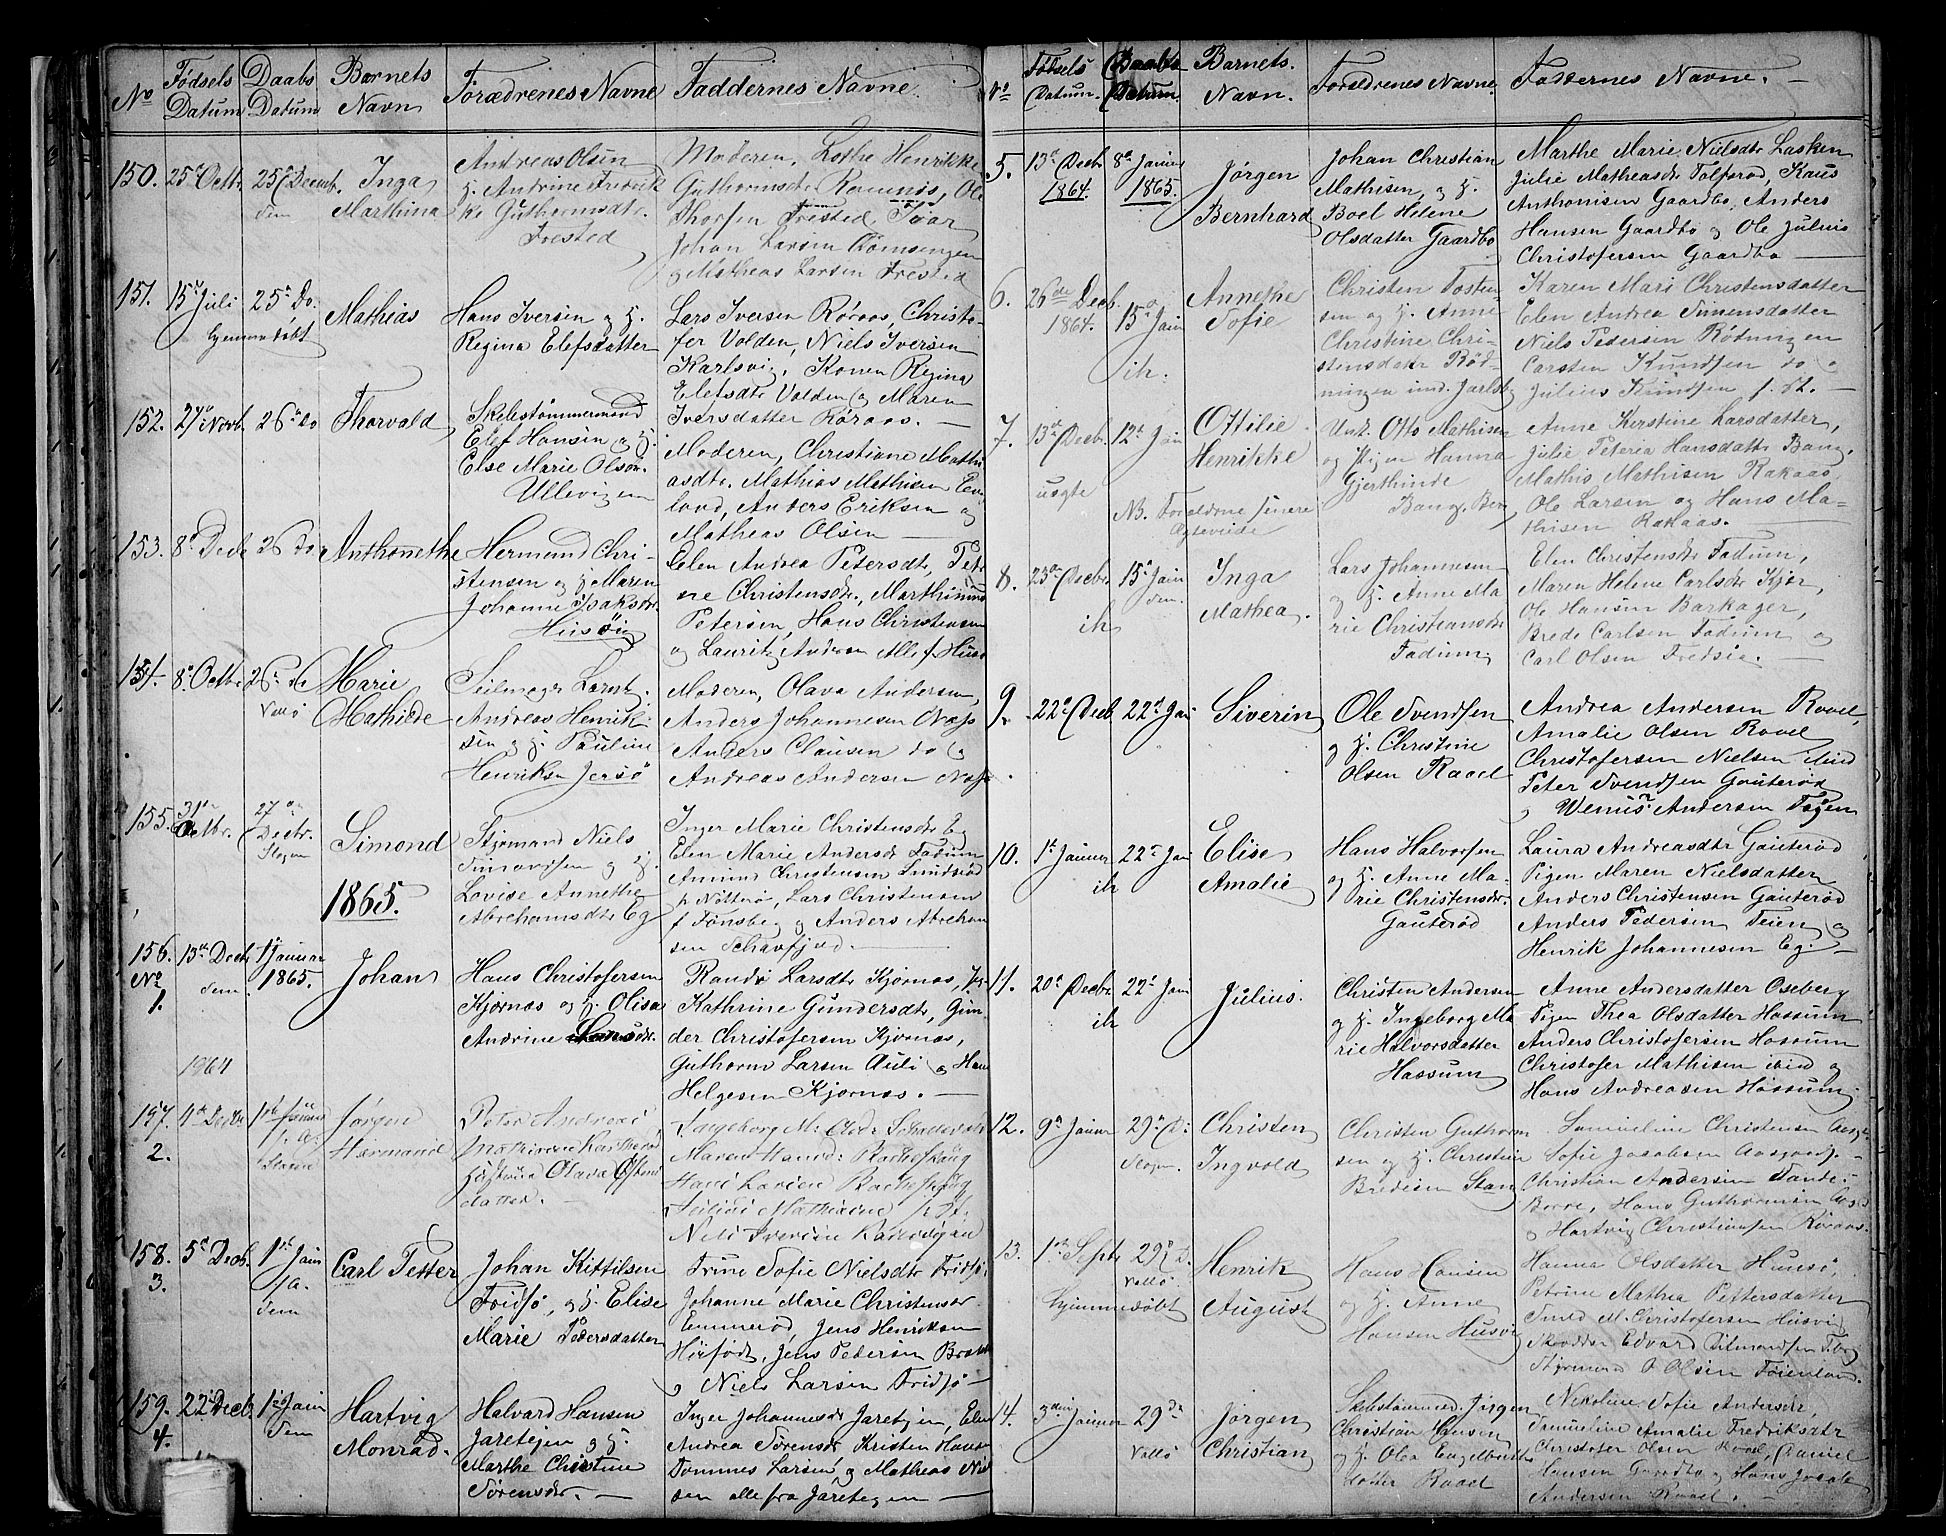 No Fødsels Datum Daabs Datum Barnets Navn Forædrenes Navne Faddernes Navne.
150. 25de Octbr. 25de Decemb. Sem Inga Marthina
Andreas Olsen
H. Andrine Fredrik
ke Guthormsdtr.
Frested
Moderen, Lothe Henrikke
Guthormsdtr Ramnæs, Ole
Thorsen Frested,
Johan Larsen
og Mathias Larsen Frested
151. 15de Juli 25de Do. Mathias
hjemmedøbt
Hans Iversen og H.
Regina Elefsdatter
Lars Iversen Røraas, Christo-
fer Volden, Niels Iversen
Karlsvig, Konen Regina
Elefsdtr Volden og Maren
Iversdatter Røraas.
152. 27de Novb. 26de Do Thorvald
Skibstømmermand
Elef Hansen og H.
Else Marie Olsdtr.
Ullevigen
Moderen, Christiane Mathi
asdtr. Mathias Mathisen
land, Anders Eriksen og
Mathias Olsen
153. 8de Decb 26 Do. Anthonethe
Hermand Chri-
stensen og H. Maren
Johanne Isaksdtr.
Husøen
Elen Andrea Petersdtr, Petr
ne Christensdtr., Marthinius
Petersen, Hans Christensen
og Lauritz Andersen Alle f. Husø
154. 8de Octbr. 26de do Vallø Marie Mathilde
Seilmager
Andreas Henrik-
sen og H. Pauline
Henriksen Jersø
Moderen, Olava Andersen,
Anders Johannesen Næs
Anders Clausen do og
Andreas Andersen Næs
155. 31te Octbr. 27de Decbr. Slagen Simond
Styrmand Niels
Simonsen og H.
Lovise Annethe
Abrahamsdtr Eg
Inger Marie Christensdtr Eg
Elen Marie Andersdtr Fadum
Amund Christensen Sundrød
p. Nøtterø, Lars Christensen
f Tønsberg og Anders Abraham
sen
1865.
156. No 1. 13de Decb. Sem 1ste Januar 1865. Johan
Hans Christofersen
Kjørnæs og H. Olisa
Andrine Larsdtr.
Randi Larsdtr Kjørnæs,
Kathrine Gundersdtr, Gun
der Christofersen Kjørnæs,
Guthorm Larsen Auli og Hans
Helgesen Kjørnæs.
1964
157. 2. 4de Decbr 1ste Januar s. a. Jørgen Hermand
Peter Andreas
Mathisen
Hustrue Olava
datter.
Ingeborg M.
Maren
Niels Iversen
158. 3. 5te Decb. 1ste Janu s/a. Sem Carl Petter
Johan Kittilsen
Fridsø, og H. Elise
Marie Pedersdatter
Trine Sofie Nielsdtr Fridsø,
Johanne Marie Christensdtr
Emmerød, Jens Henriksen
Jens Pedersen
og Niels Larsen Fridsø
159. 4. 22de Decb. 1ste Janu Sem Hartvig Monrad.
Halvard Hansen
Jareteigen og H.
Marthe Christine
Sørensdtr.
Inger Johannesdtr Jareteigen, Elen
Andrea Sørensdtr Kristen Hansen
Tommes Larsen og Mathias Niel
sen alle fra Jareteigen
No Fødsels Datum. Daabs Datum. Barnets. Navn. Forældrenes Navne. Faddernes Navne.
5. 13de Decb. 1864. 8de Januar 1865. Jørgen Bernhard
Johan Christian
Mathisen, og H.
Boel Helene
Olsdatter Gaardbo
Marthe Marie Nielsdtr Lasken
Julie Matheasdtr Tolfsrød, Kaus
Anthonisen Gaardbo, Anders
Hansen Gaardbo og Ole Julius
Christofersen Gaardbo
6. 26de Decb. 1864. 15de Janu ibd. Annethe Sofie
Christen Tosten-
sen og H. Anne
Christine Chri-
stensdatr Rød-
ningen ind. Jarlsb
Karen Mari Christensdatter
Elen Andrea Simensdatter
Niels Pedersen Rødningen
Carsten Knudsen do og
Julius Knudsen f. St.
7. 13de Decb. 12de Jan Ottilie Henrikke
uægte NB. Forældrene senere Ægteviede
Unk. Otto Mathisen
og Pigen Hanna
Gjerthinde
Bang.
Anne Kerstine Larsdatter,
Julie Peterea Hansdatter Bang,
Mathis Mathisen Rakaas
Ole Larsen og Hans Ma-
thisen Rakaas.
8. 23de Decbr 15de Janu Sem. Inga Mathea.
Lars Johannesen
og H. Anne Ma
rie Christiansdtr
Fadum
Elen Christensdtr Fadum,
Maren Helene Carlsdtr Kjær,
Ole Hansen Barkager,
Brede Carlsen Fadum og
Carl Olsen Fredsø.
9. 22de Decb 22de Jan Siverin
Ole Svendsen
og H. Christine
Olsen Raael
Andrea Andersen Raael,
Amalie Olsen Raael
Christofersen Nielsen ibid
Peter Svendsen Gauterød
og Wenus Andersen Fogen
10. 1ste Januar 22de Jan Elise Amalie
Hans Halvorsen
og H. Anne Ma-
rie Christensdtr.
Gauterød
Laura Andreasdtr Gauterød
Pigen Maren Nielsdatter
Anders Christensen Gauterød
Anders Pedersen Teien og
Henrik Johannesen Eg.
11. 20de Decbr 22de Jan Julius.
Christen Andersen
og H. Ingeborg Ma
rie Halvorsdatter
Hassum
Anne Andersdatter Oseberg
Pigen Thea Olsdatter Hassum
Anders Christofersen Hassum
Christofer Mathisen ibid og
Hans Andreasen Hassum.
12. 9de Januar 29de D. Slagen. Christen Ingvold
Christen Guthorm
sen og H. Christine
Bredesen Stang
Samueline Christensen
Sofie Jacobsen
Christian Andersen Sande
Borre, Hans Guthormsen
og Hartvig Christiansen Røraas.
13. 1ste Septr 29de D. Vallø. Henrik August
hjemmedøbt
Hans Hansen
og H. Anne
Hansen Husvig
Hanna Olsdatter Husøe,
Petrine Mathea Pettersdatter
Svend M. Christofersen Husvig
Skrædder Edvard
Styrmand O Olsen Føienland.
14. 3die Januar 29de Vallø Jørgen Christian
Skibstømmd. Jørgen
Christian Hansen
og H. Olea Engelbrets
datter Raael
Nikoline Sofie Andersdtr,
Samueline Amalie Fredriksdtr
Christofer Olsen Raael, Daniel
Hansen Gaardbo og Hans Jacob
Andersen Raael.